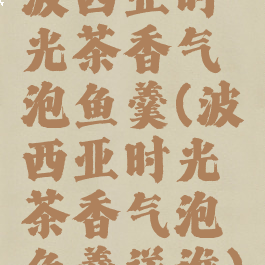 波西亚时
光茶香气
泡鱼羹(波
西亚时光
茶香气泡
鱼羹说淮)